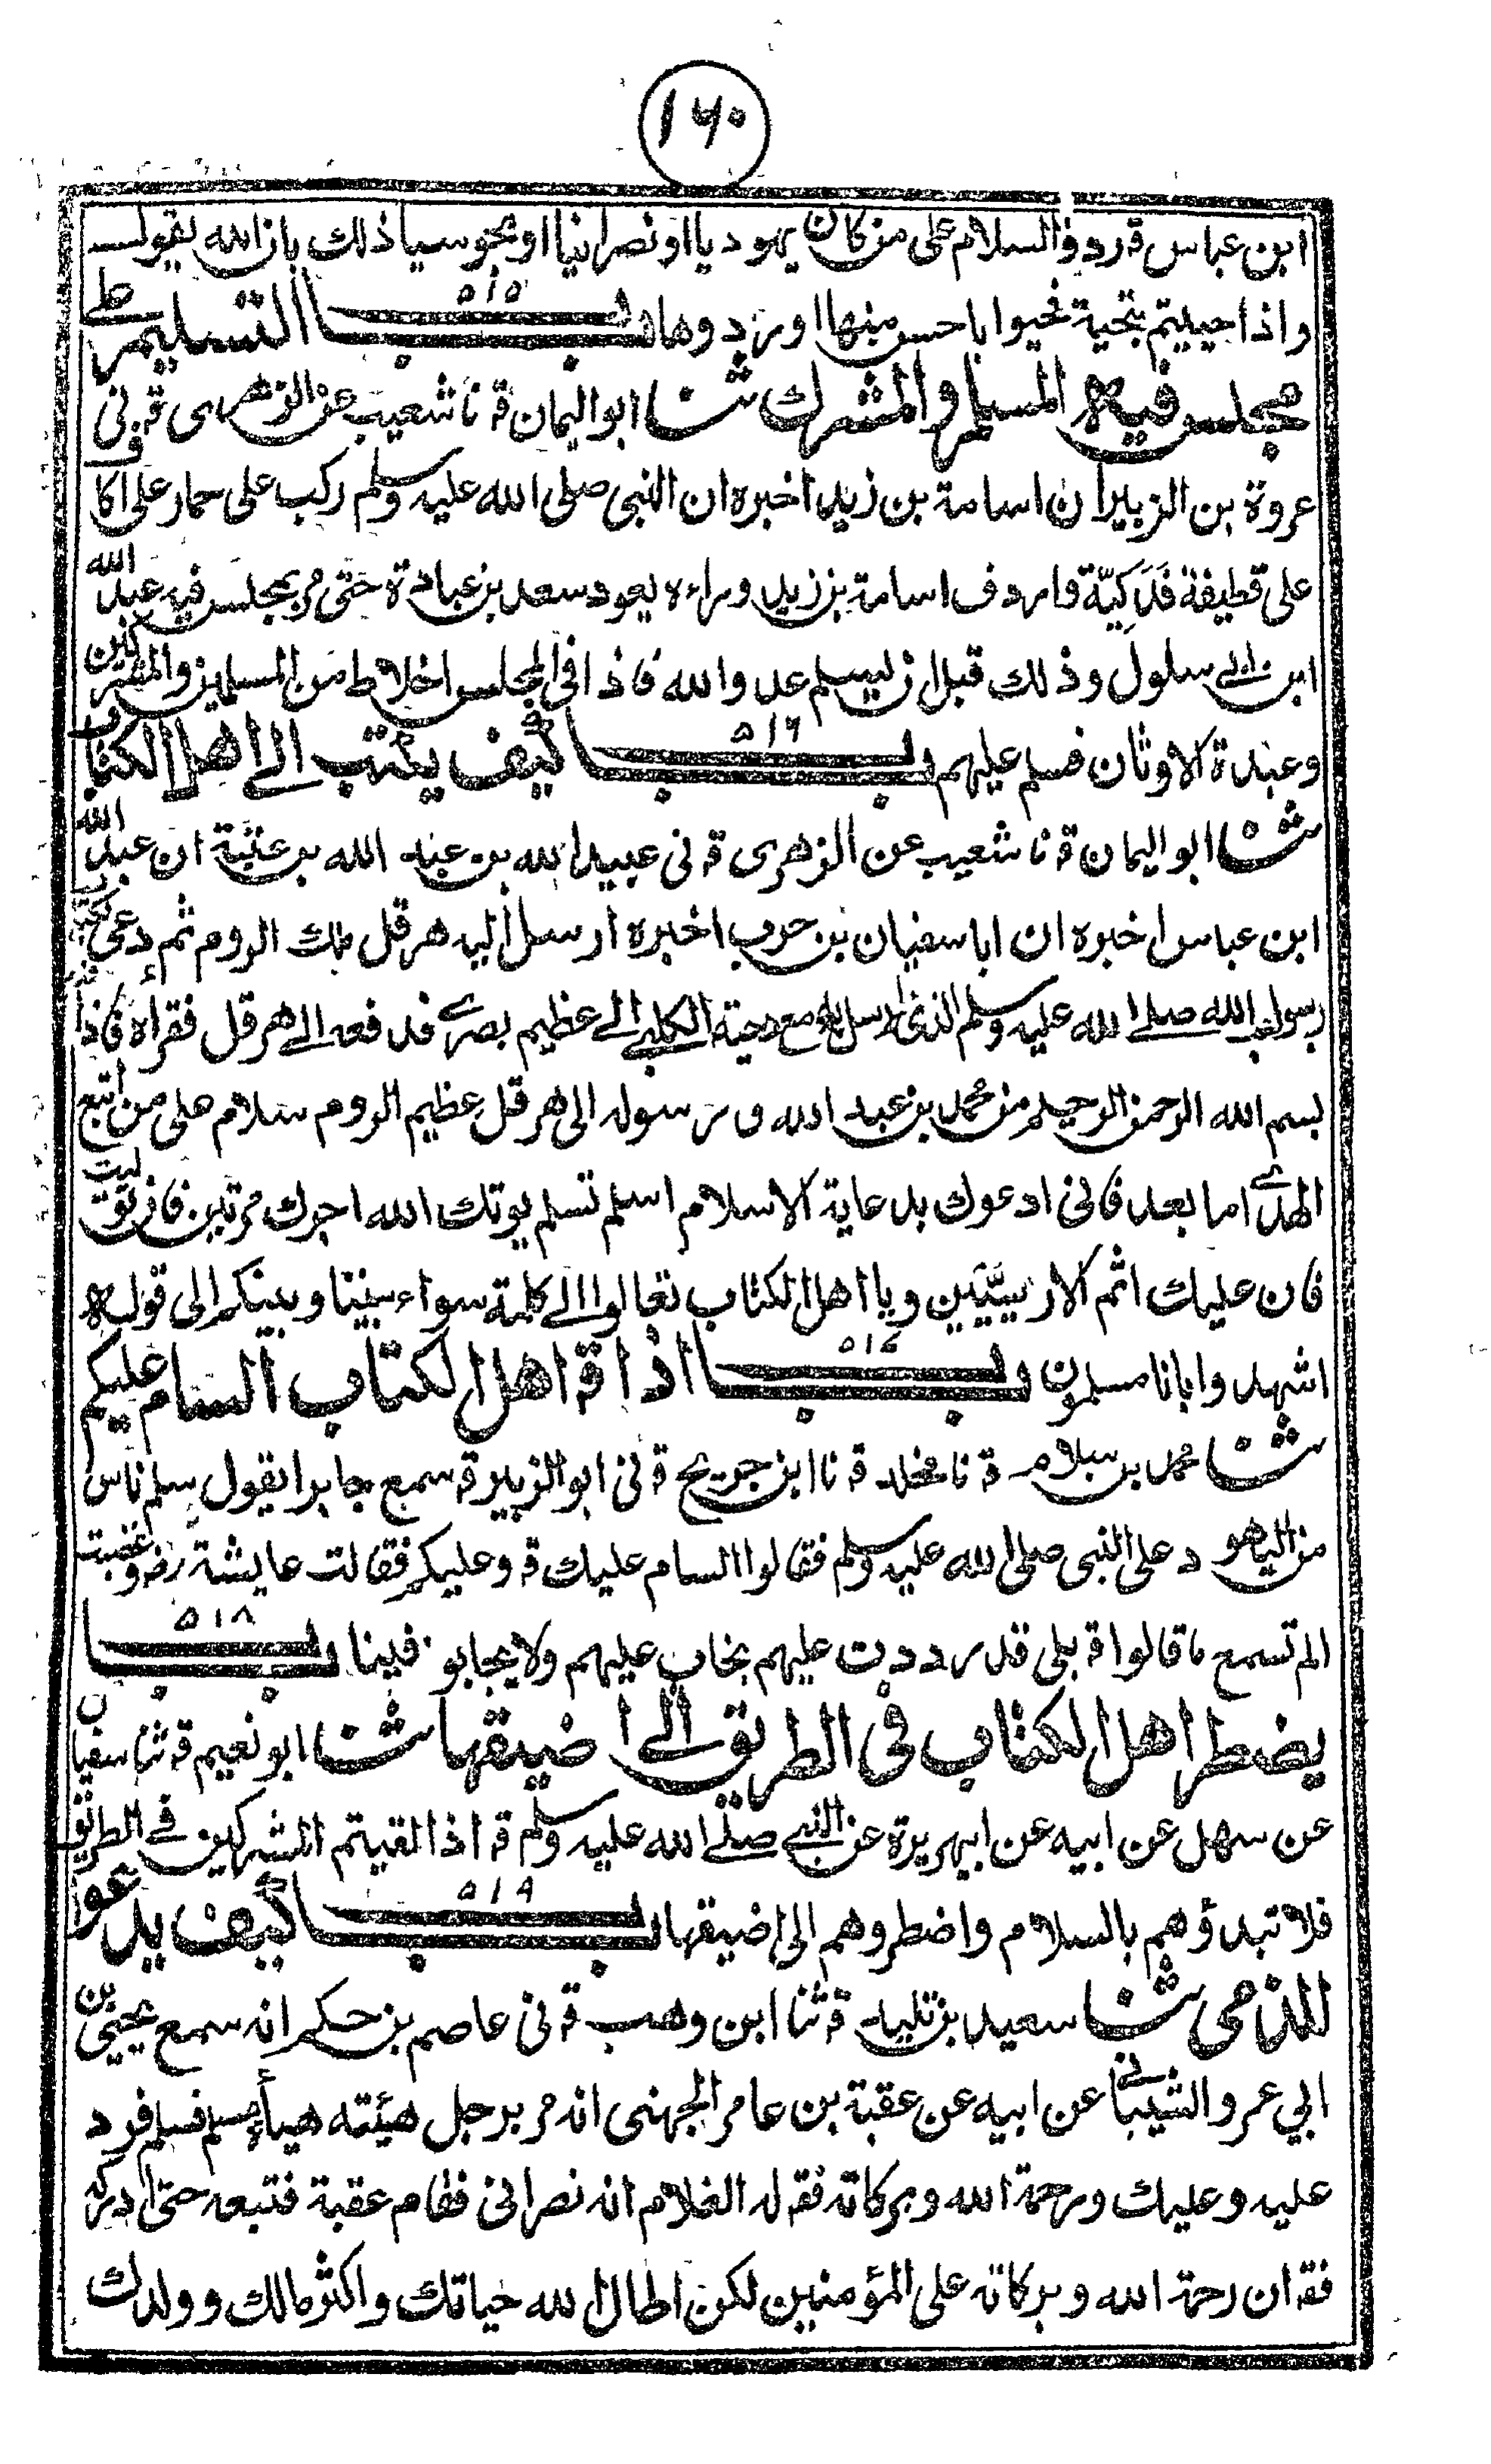 ۱۶۰
ابن عباس قہ ردوا السلام على من كان يهوديا او نصرانيا او مجوسيا ذلك بان الله يقول
واذا حييتم بتحية فحيوا باحسن منها او ردوها باب ۵۱۵ التسليم على
مجلس فيه المسلم والمشرك ثنا ابو اليمان قہ نا شعيب عن الزهرى قہ نى
عروة بن الزبير ان اسامة بن زيد اخبره ان النبى صلى الله عليه وسلم ركب على حمار على اكاف
على قطيفة فَدَكِيّة واردف اسامة بن زيد وراءه يعود سعد بن عبادة حتى مر بمجلس فيه عبد الله
ابن ابے سلول وذلك قبل ان يسلم عدو الله فاذا فى المجلس اخلاط من المسلمين والمشركين
وعبدة الاوثان فسلم عليهم باب ۵۱۶ كيف يكتب الے اهل الكتاب
ثنا ابو اليمان قہ نا شعيب عن الزهرى قہ نى عبيد الله بن عبد الله بن عتبة ان عبد الله
ابن عباس اخبره ان ابا سفيان بن حرب اخبره ارسل اليه هرقل ملك الروم ثم دعى بكتاب
رسول الله صلے الله عليه وسلم الذى ارسل به مع دحية الكلبے الے عظيم بصرے فدفعه الے هرقل فقراه فاذا فيه
بسم الله الرحمن الرحيم من محمد بن عبد الله ورسوله الى هرقل عظيم الروم سلام على من اتبع
الهدے اما بعد فانى ادعوك بدعاية الاسلام اسلم تسلم يوتك الله اجرك مرتين فان توليت
فان عليك اثم الاريسيَّين ويا اهل الكتاب تعالوا الے كلمة سواء بيننا وبينكم الى قوله
اشهدوا بانا مسلمون باب ۵۱۷ اذا قہ اهل الكتاب السام عليكم
ثنا محمد بن سلام قہ نا مخلد قہ نا ابن جريج قہ نى ابو الزبير قہ سمع جابرا يقول سلم ناس
من اليهود على النبى صلى الله عليه وسلم فقالوا السام عليك قہ وعليكم فقالت عايشة رض وغضبت
الم تسمع ما قالوا قہ بلى قد رددت عليهم نجاب عليهم ولا يجابو فينا باب ۵۱۸
يضطر اهل الكتاب فى الطريق الے اضيقها ثنا ابو نعيم قہ ثنا سفيان
عن سهل عن ابيه عن ابيهريرة عن النبے صلے الله عليه وسلم قہ اذا لقيتم المشركين فے الطريق
فلا تبدؤهم بالسلام واضطروهم الى اضيقها باب ۵۱۹ كيف يدعو
للذمى ثنا سعيد بن تليد قہ ثنا ابن وهب قہ نى عاصم بن حكم انه سمع يحيى بن
ابي عمرو الشيبانى عن ابيه عن عقبة بن عامر الجهنى انه مر برجل هيئته هيأة مسلم فسلم فرد
عليه وعليك ورحمة الله وبركاته فقہ له الغلام انه نصرانى فقام عقبة فتبعه حتى ادركه
فقہ ان رحمة الله وبركاته على المؤمنين لكن اطال الله حياتك واكثر مالك وولدك